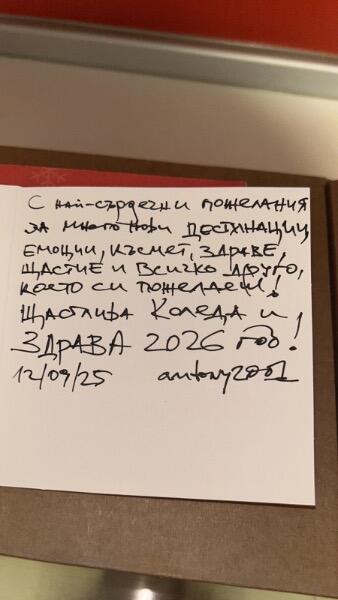 С най-сърдечни пожелания
за много нови дестинации,
емоции, късмет, здраве,
щастие и всичко друго,
което си пожелаеш!
Щастлива Коледа и
ЗДРАВА 2026 год!
12/09/25 antony2001